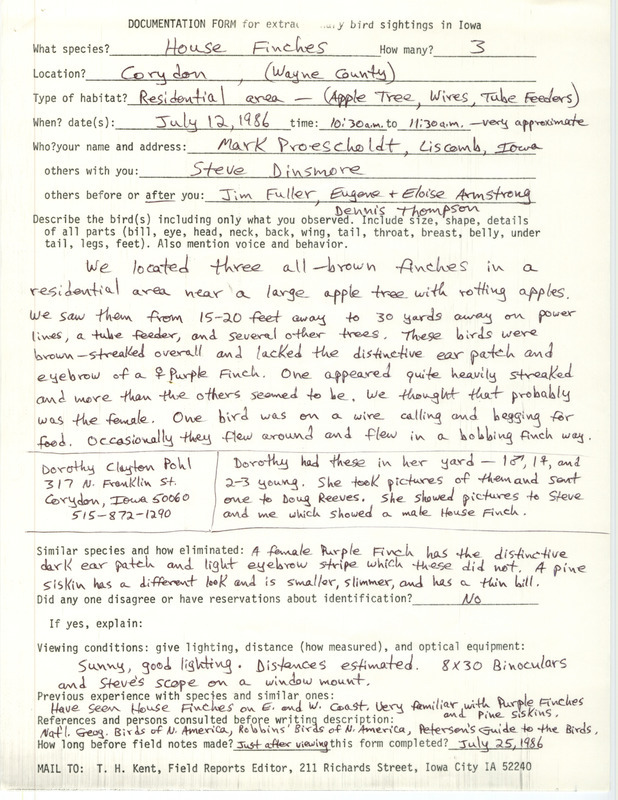 DOCUMENTATION FORM for extra y bird sightings in Iowa
What species? House Finches How many? 3
Location? Corydon, (Wayne County)
Type of habitat? Residential area — (Apple Tree, Wires, Tube Feeders)
When? date(s): July 12, 1986 time: 10:30 a.m. to 11:30 a.m. — very approximate
Who? your name and address: Mark Proescholdt, Liscomb, Iowa
others with you: Steve Dinsmore
others before or after you: Jim Fuller, Eugene + Eloise Armstrong
Dennis Thompson
Describe the bird(s) including only what you observed. Include size, shape, details
of all parts (bill, eye, head, neck, back, wing, tail, throat, breast, belly, under
tail, legs, feet). Also mention voice and behavior.
We located three all-brown finches in a
residential area near a large apple tree with rotting apples.
We saw them from 15-20 feet away to 30 yards away on power
lines, a tube feeder, and several other trees. These birds were
brown-streaked overall and lacked the distinctive ear patch and
eyebrow of a ♀ Purple Finch. One appeared quite heavily streaked
and more than the others seemed to be. We thought that probably
was the female. One bird was on a wire calling and begging for
food. Occasionally they flew around and flew in a bobbing finch way.
Dorothy Clayton Pohl
317 N. Franklin St.
Corydon, Iowa 50060
515-872-1290
Dorothy had these in her yard — 1♂, 1♀, and
2-3 young. She took pictures of them and sent
one to Doug Reeves. She showed pictures to Steve
and me which showed a male House Finch.
Similar species and how eliminated: A female Purple Finch has the distinctive
dark ear patch and light eyebrow stripe which these did not. A pine
siskin has a different look and is smaller, slimmer, and has a thin bill.
Did any one disagree or have reservations about identification? No
If yes, explain:
Viewing conditions: give lighting, distance (how measured), and optical equipment:
Sunny, good lighting. Distances estimated. 8X30 Binoculars
and Steve's scope on a window mount.
Previous experience with species and similar ones:
Have seen House Finches on E. and W. Coast. Very familiar with Purple Finches
and Pine Siskins.
References and persons consulted before writing description:
Nat'l. Geog. Birds of N. America, Robbins' Birds of N. America, Peterson's Guide to the Birds.
How long before field notes made? Just after viewing this form completed? July 25, 1986
MAIL TO: T. H. Kent, Field Reports Editor, 211 Richards Street, Iowa City IA 52240